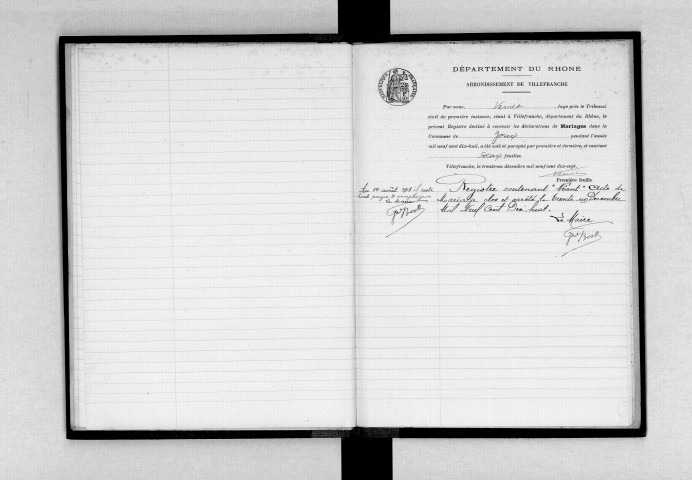 DÉPARTEMENT DU RHONE
ARRONDISSEMENT DE VILLEFRANCHE
Par nous, Juge près le Tribunal
civil de première instance, séant à Villefranche, département du Rhône, le
présent Registre destiné à recevoir les déclarations de Mariages dans la
Commune de Joux pendant l'année
mil neuf cent dix-huit, a été coté et paraphé par première et dernière, et contient
feuilles
Villefranche, le trente-un décembre mil neuf cent dix-sept.
Première feuille
Registre contenant "Néant" Acte de
Mariage clos et arrêté le trente un Décembre
Mil Neuf Cent Dix huit.
Le Maire